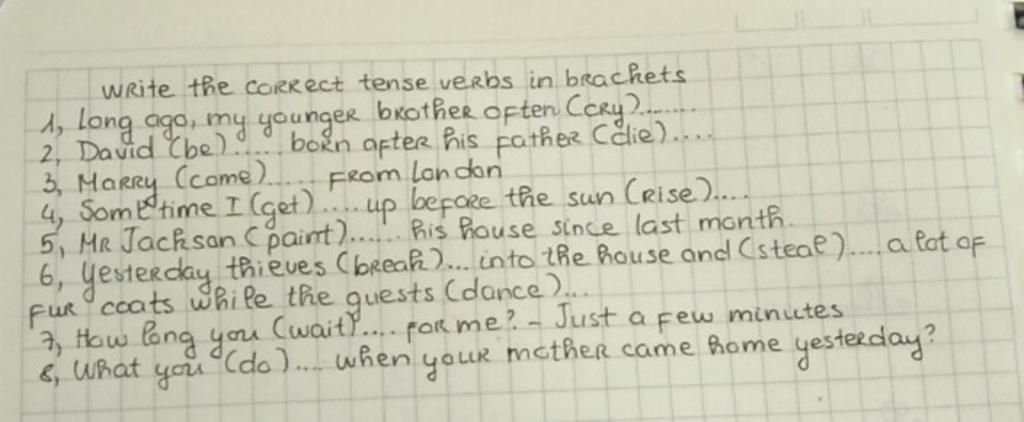 Write the correct tense verbs in brackets
1, Long ago, my younger brother often (cry)........
2, David (be)..... born after his father (die)....
3, Marry (come)..... From London
4, Sometime I (get).... up before the sun (rise)....
5, Mr Jackson (paint)...... his house since last month.
6, Yesterday thieves (break)... into the house and (steal).... a lot of
fur coats while the guests (dance)...
7, How long you (wait).... for me? - Just a few minutes
8, What you (do).... when your mother came home yesterday?